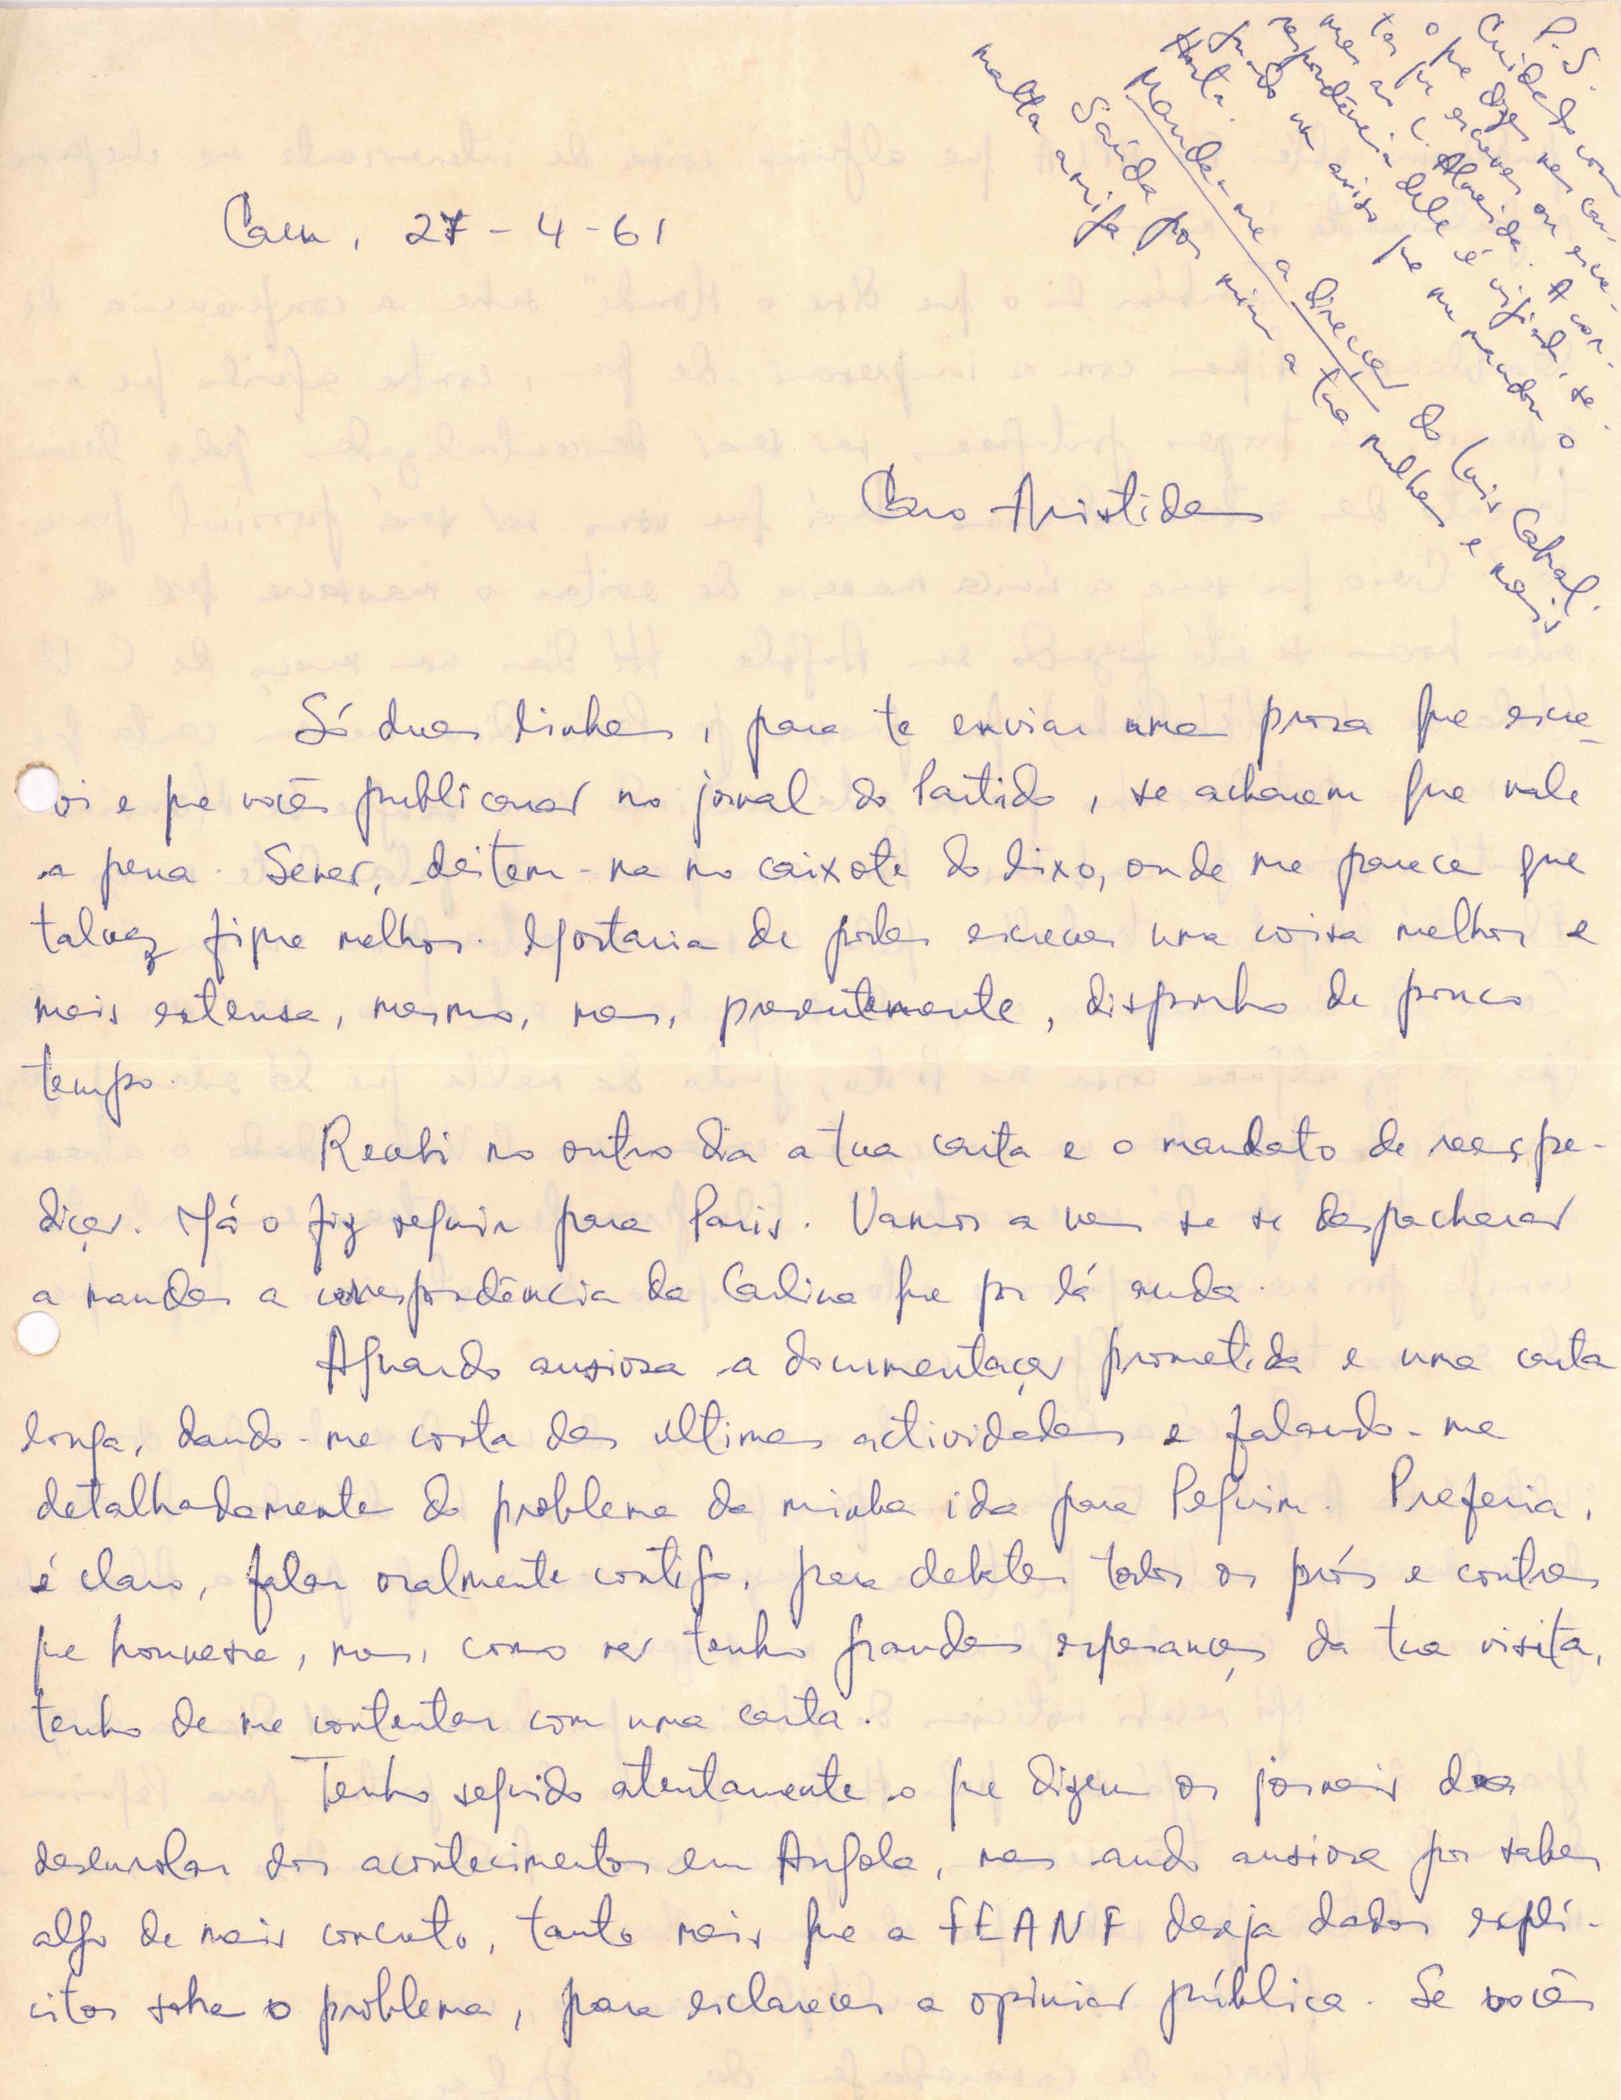 P.S.
Cuidado com
o que dizes nas car-
tas que escreves ou escre-
ves ao C. Almeida. A cor-
respondência dele é vigiada, se-
gundo um aviso que me mandou o
Horta.
Manda-me a direcção do Luís Cabral.
Saúda por mim a tua mulher e mais
malta amiga.
Caen, 27-4-61
Caro Aristides
Só duas linhas, para te enviar uma prosa que escre-
vi e que vocês publicarão no jornal do Partido, se acharem que vale
a pena. Senão, deitem-na no caixote do lixo, onde me parece que
talvez fique melhor. Gostaria de poder escrever uma coisa melhor e
mais extensa, mesmo, mas, presentemente, disponho de pouco
tempo.
Recebi no outro dia a tua carta e o mandato de reexpe-
dição. Já o fiz seguir para Paris. Vamos a ver se se despacharão
a mandar a correspondência da Carlina que por lá anda.
Aguardo ansiosa a documentação prometida e uma carta
longa, dando-me conta das ultimas actividades e falando-me
detalhadamente do problema da minha ida para Pequim. Preferia,
é claro, falar oralmente contigo, para debater todos os prós e contras
que houvesse, mas, como não tenho grandes esperanças da tua visita,
tenho de me contentar com uma carta.
Tenho seguido atentamente o que dizem os jornais do
desenrolar dos acontecimentos em Angola, mas ando ansiosa por saber
algo de mais concreto, tanto mais que a FEANF deseja dados explí-
citos sobre o problema, para esclarecer a opinião pública. Se vocês